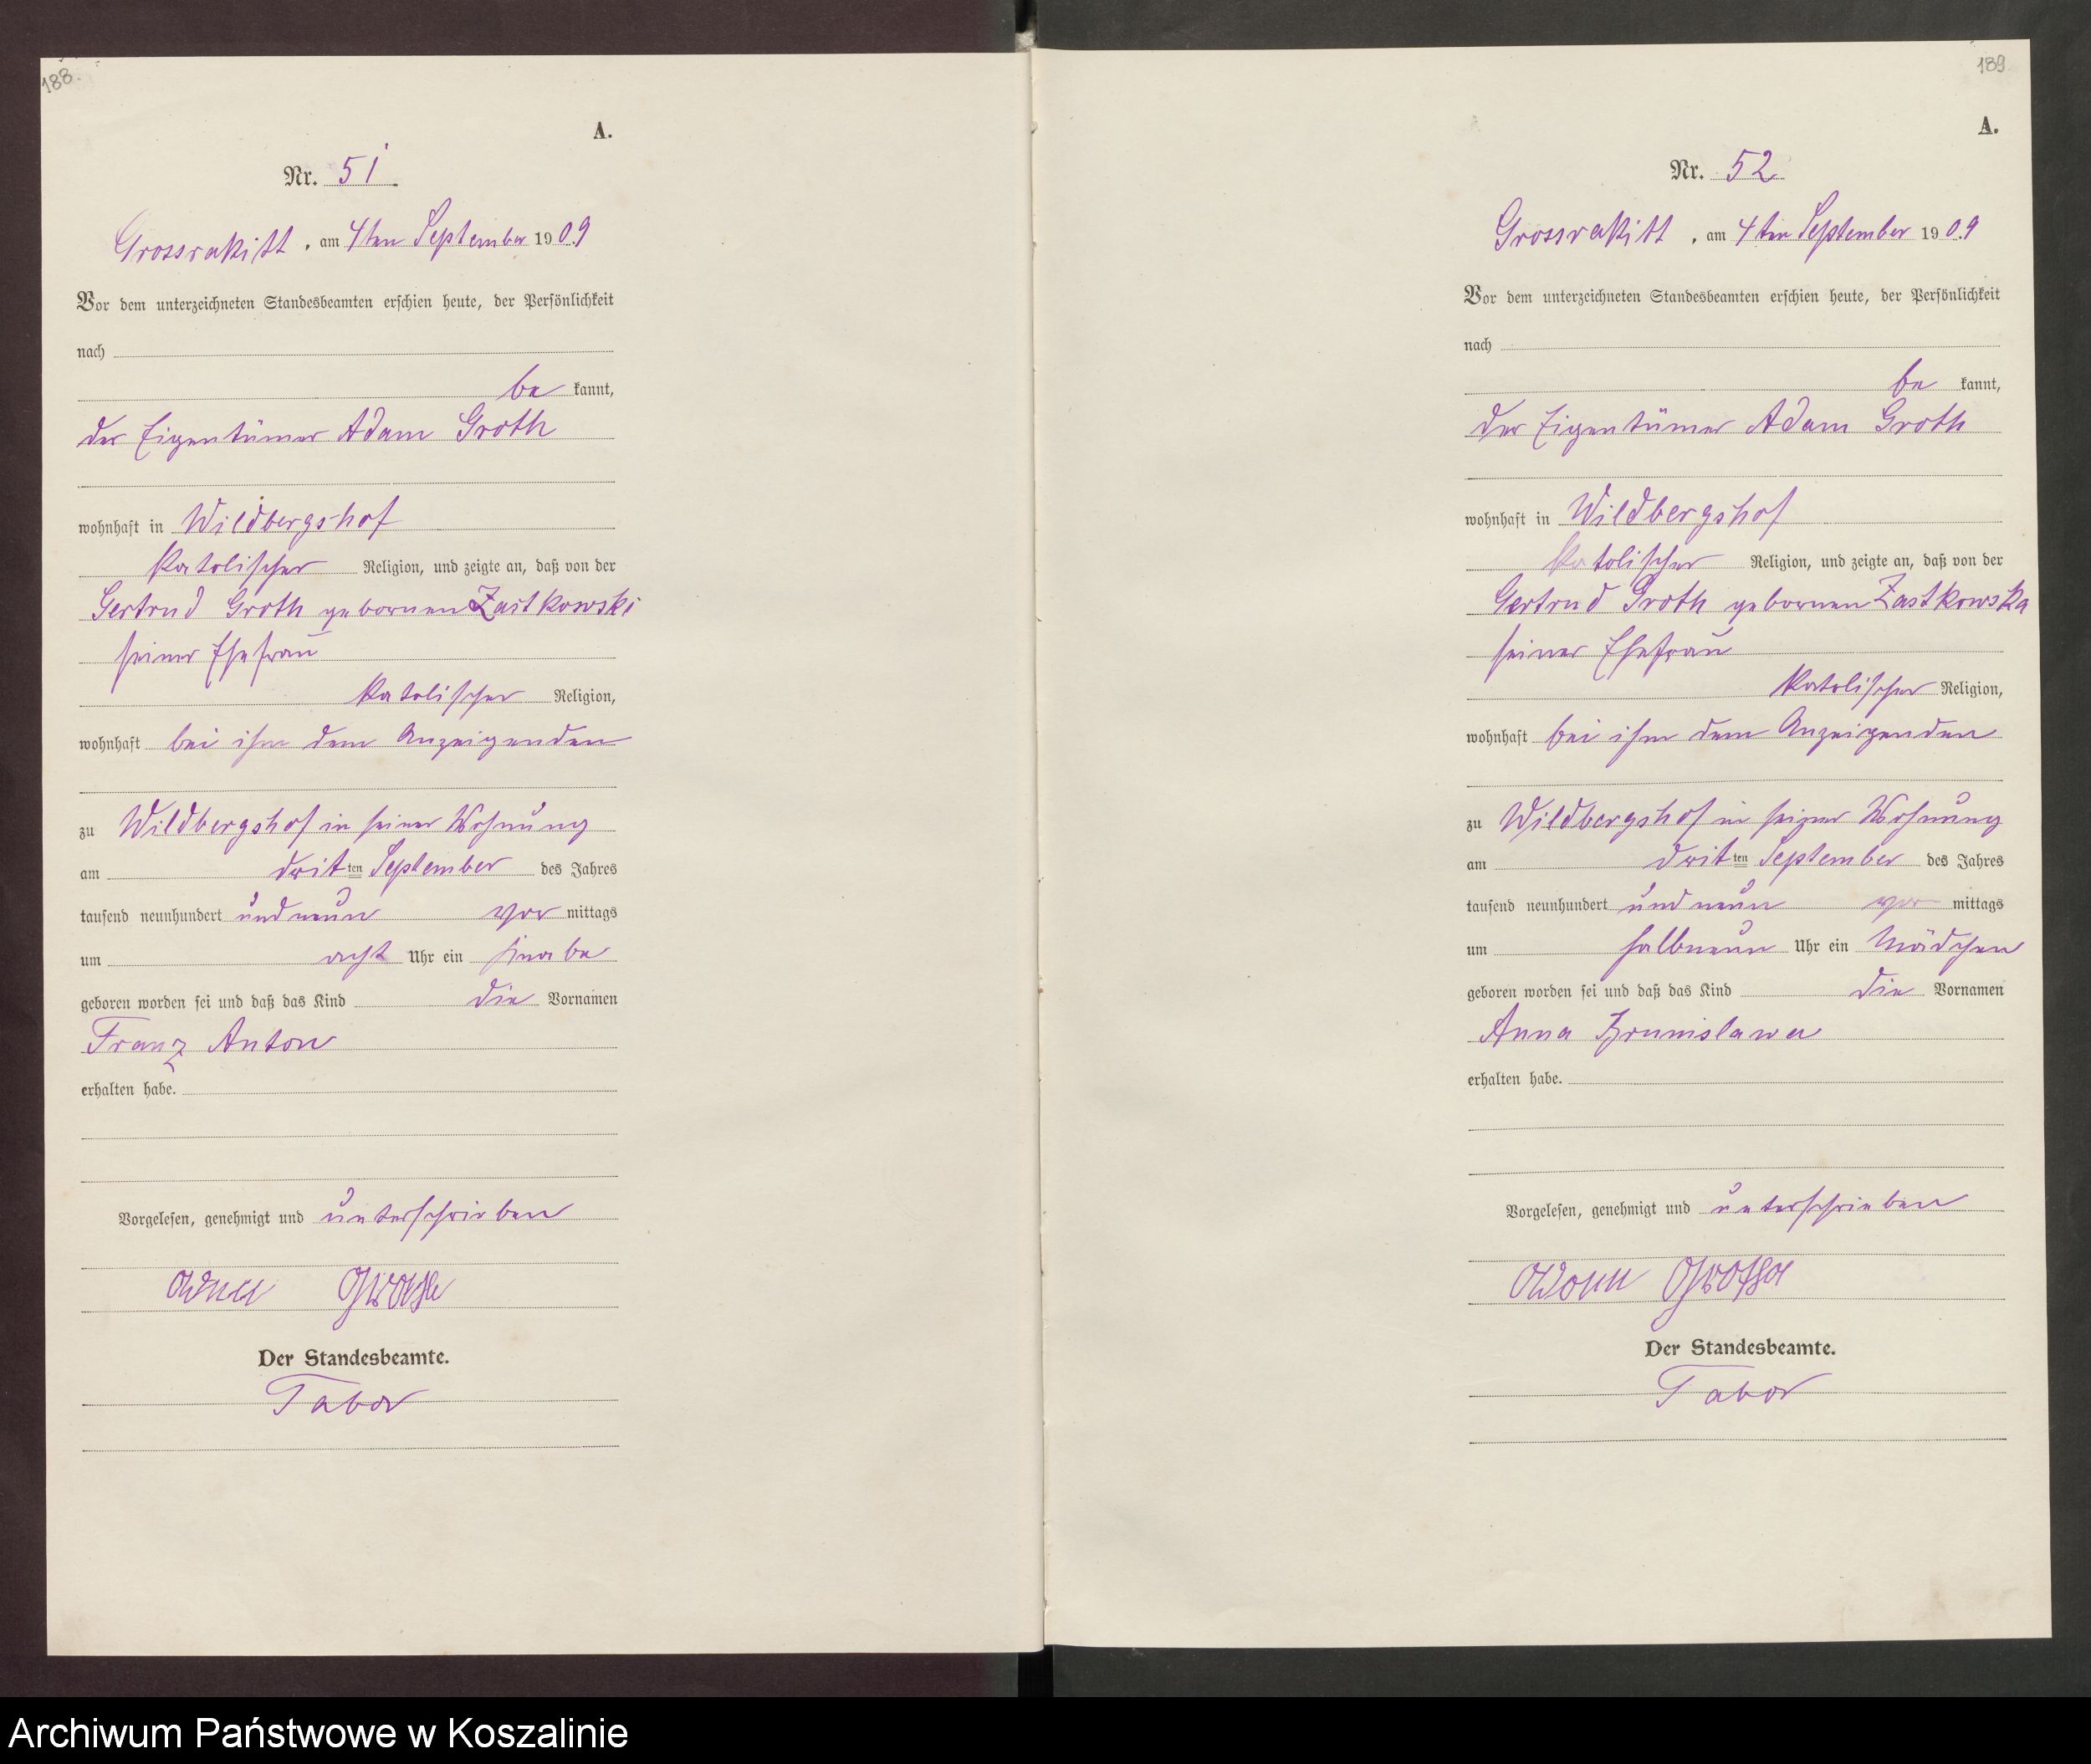 188.
A.
Nr. 51
Grossrakitt, am 4ten September 1909
Vor dem unterzeichneten Standesbeamten erschien heute, der Persönlichkeit
nach
be kannt,
der Eigentümer Adam Groth
wohnhaft in Wildbergshof
katolischer Religion, und zeigte an, daß von der
Gertrud Groth gebornen Zastkowski
seiner Ehefrau
katolischer Religion,
wohnhaft bei ihm dem Anzeigenden
zu Wildbergshof in seiner Wohnung
am drit ten September des Jahres
tausend neunhundert und neun vor mittags
um acht Uhr ein Knabe
geboren worden sei und daß das Kind die Vornamen
Franz Anton
erhalten habe.
Vorgelesen, genehmigt und unterschrieben
Adam Groth
Der Standesbeamte.
Tabor
189
A.
Nr. 52
Grossrakitt, am 4ten September 1909
Vor dem unterzeichneten Standesbeamten erschien heute, der Persönlichkeit
nach
be kannt,
der Eigentümer Adam Groth
wohnhaft in Wildbergshof
katolischer Religion, und zeigte an, daß von der
Gertrud Groth gebornen Zastkowska
seiner Ehefrau
katolischer Religion,
wohnhaft bei ihm dem Anzeigenden
zu Wildbergshof in seiner Wohnung
am drit ten September des Jahres
tausend neunhundert und neun vor mittags
um halbneun Uhr ein Mädchen
geboren worden sei und daß das Kind die Vornamen
Anna Brunislawa
erhalten habe.
Vorgelesen, genehmigt und unterschrieben
Adam
Der Standesbeamte.
Tabor
Archiwum Państwowe w Koszalinie